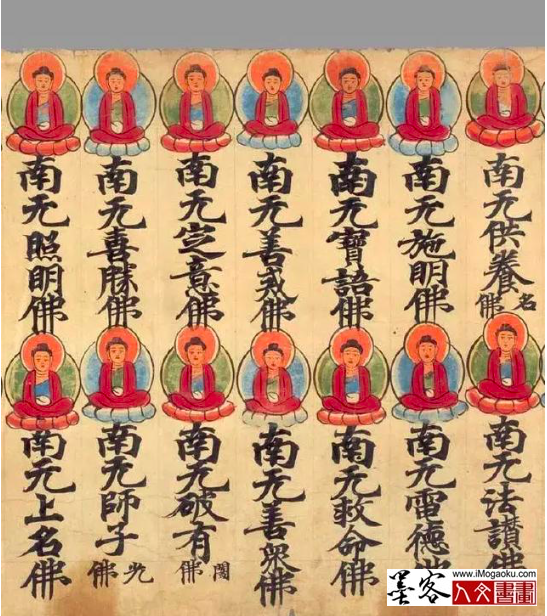 南无供養名佛
南无法讃佛
南无施明佛
南无雷德
南无寶語佛
南无救命佛
南无善戒佛
南无善眾佛
南无定意佛
南无破有闇佛
南无喜勝佛
南无師子光佛
南无照明佛
南无上名佛
墨客
www.iMogaoku.com
人文書畫